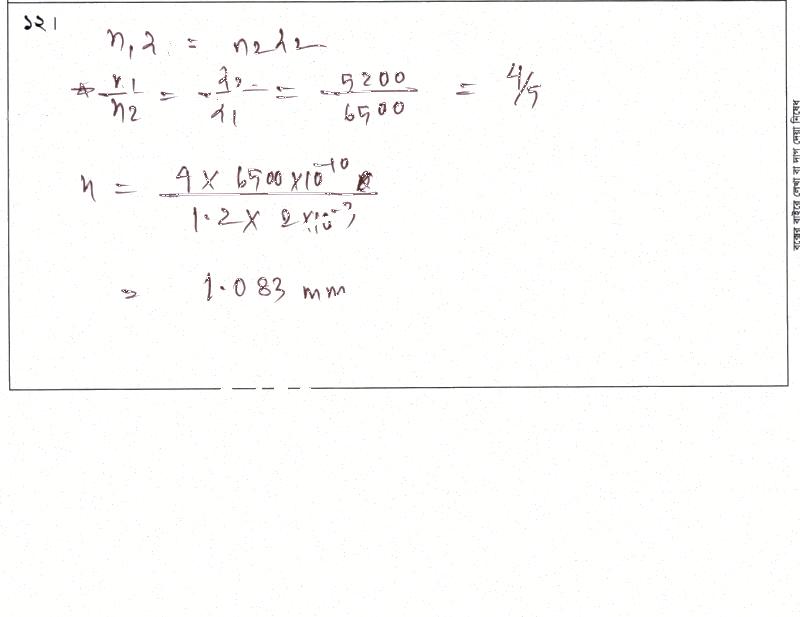 ১২।
n, λ = n2λ2
n1/n2 = λ2/λ1 = 5200/6500 = 4/5
n = 4 × 6500×10^-10 / 1.2 × 2×10^-3
= 1.083 mm
বক্সের বাইরে লেখা বা দাগ দেয়া নিষেধ